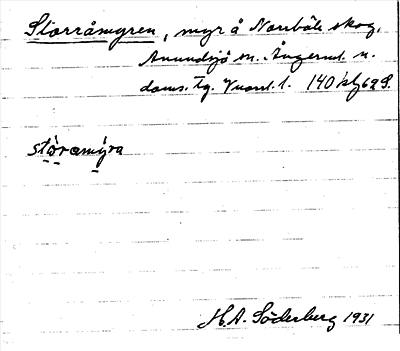 Storråmyren, myr å Norrböle skog,
Anundsjö sn. Ångerml. n.
doms. Tg. 140 kbl 62 S.
støramýra
H.A. Söderberg 1931